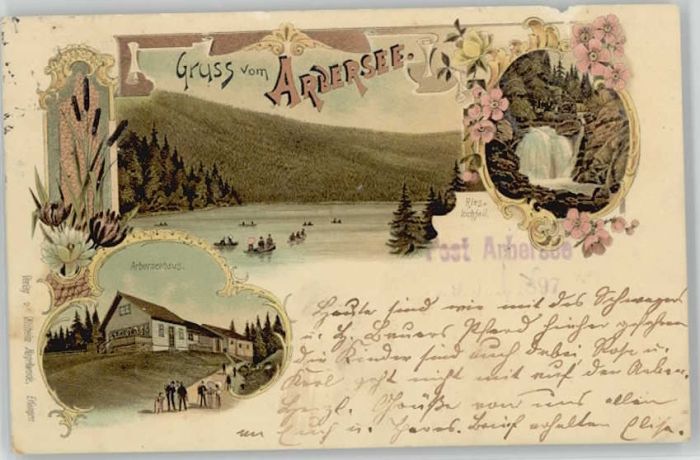 Gruss vom ARBERSEE.
Riesslochfall.
Arberseehaus.
Post Arbersee
897
Heute sind wir mit des Schwagers
u. H. Bauers Pferd hieher gefahren
die Kinder sind auch dabei Rosa u.
Karl geht nicht mit auf den Arber.
Herzl. Grüße von uns allen
an Euch u. Theres. Brief erhalten Elisa.